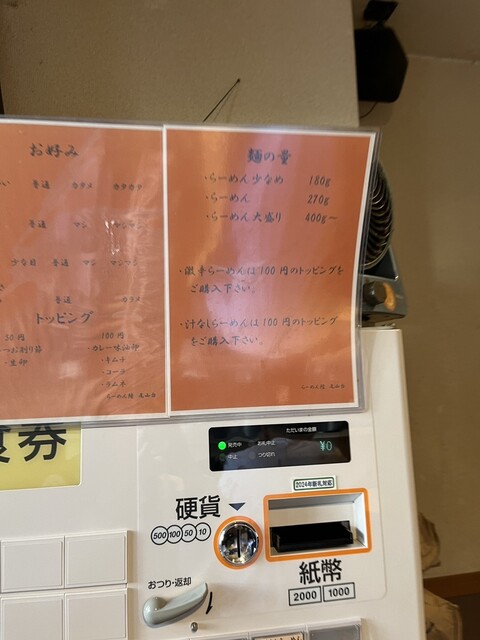 お好み
普通 カタメ カタカタ
普通 マシ マシマシ
少な目 普通 マシ マシマシ
普通 カタメ
トッピング
50円
・つぶ割り節
・生卵
100円
・カレー味油卵
・キムチ
・コーチ
・ラムネ
らーめん 隆 高山台
麺の量
・らーめん 少なめ 180g
・らーめん 270g
・らーめん 大盛り 400g〜
・激辛らーめんは100円のトッピングを
ご購入下さい。
・汁なしらーめんは100円のトッピング
をご購入下さい。
食券
ただいまの金額
発売中 お札中止
中止 つり切れ
¥0
2024年新札対応
硬貨
500 100 50 10
紙幣
2000 1000
おつり・返却